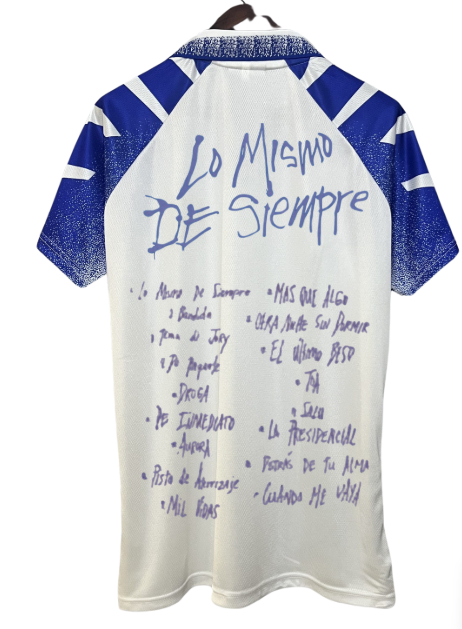 Lo Mismo
DE Siempre
• Lo Mismo De Siempre
• Bandido
• Tema de Jory
• DROGA
• DE INMEDIATO
• AURORA
• Pista de Aterrizaje
• MIL VIDAS
• MAS QUE ALGO
• OTRA NOCHE SIN DORMIR
• EL último BESO
• TOA
• SOLO
• LA PRESIDENCIAL
• DETRÁS DE TU ALMA
• CUANDO ME VAYA